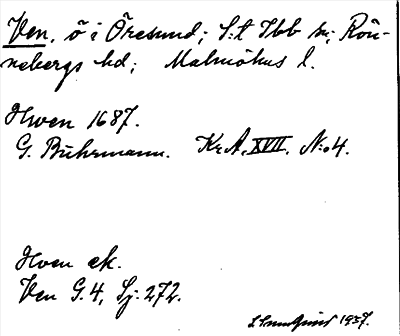 Ven, ö i Öresund; S:t Ibb sn; Rön-
nebergs hd; Malmöhus l.
Hwen 1687.
G. Buhrmann. KrA, XVII. N:o 4.
Hven ek.
Ven G. 4, Sj: 272.
1957.